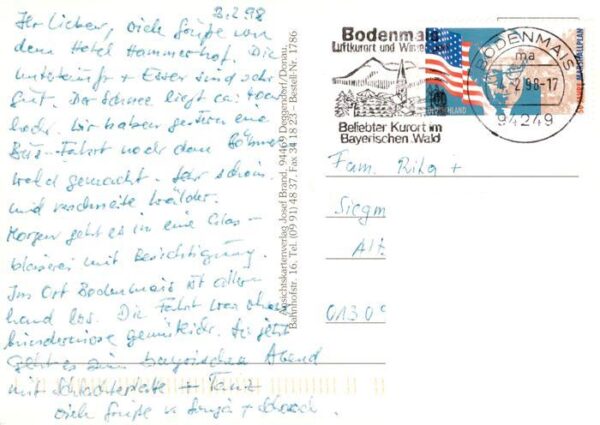 3.2.98
Ihr Lieben, viele Grüße von
dem Hotel Hammerhof. Die
Unterkunft + Essen sind sehr
gut. Der Schnee liegt ca.
hoch. Wir haben gestern eine
Bus-Fahrt nach dem Böhmer
wald gemacht. Sehr schön
und verschneite Wälder.
Morgen geht es in eine Glas-
bläserei mit Besichtigung.
Im Ort Bodenmais ist allen
hand los. Die Fahrt war ohne
hindernisse gemütlich.
Geht es zum bayrischen Abend
mit Schlachteplatte + Tanz
viele Grüße u
Ansichtskartenverlag Josef Brand, 94469 Deggendorf/Donau,
Bahnhofstr. 16, Tel. (09 91) 48 37, Fax 34 18 23 – Bestell-Nr. 1786
Bodenmais
Luftkurort und
Beliebter Kurort im
Bayerischen Wald
BODENMAIS
ma
2.98-17
94249
MARSHALLPLAN
Fam. Rita +
Siegm
Alt
0130